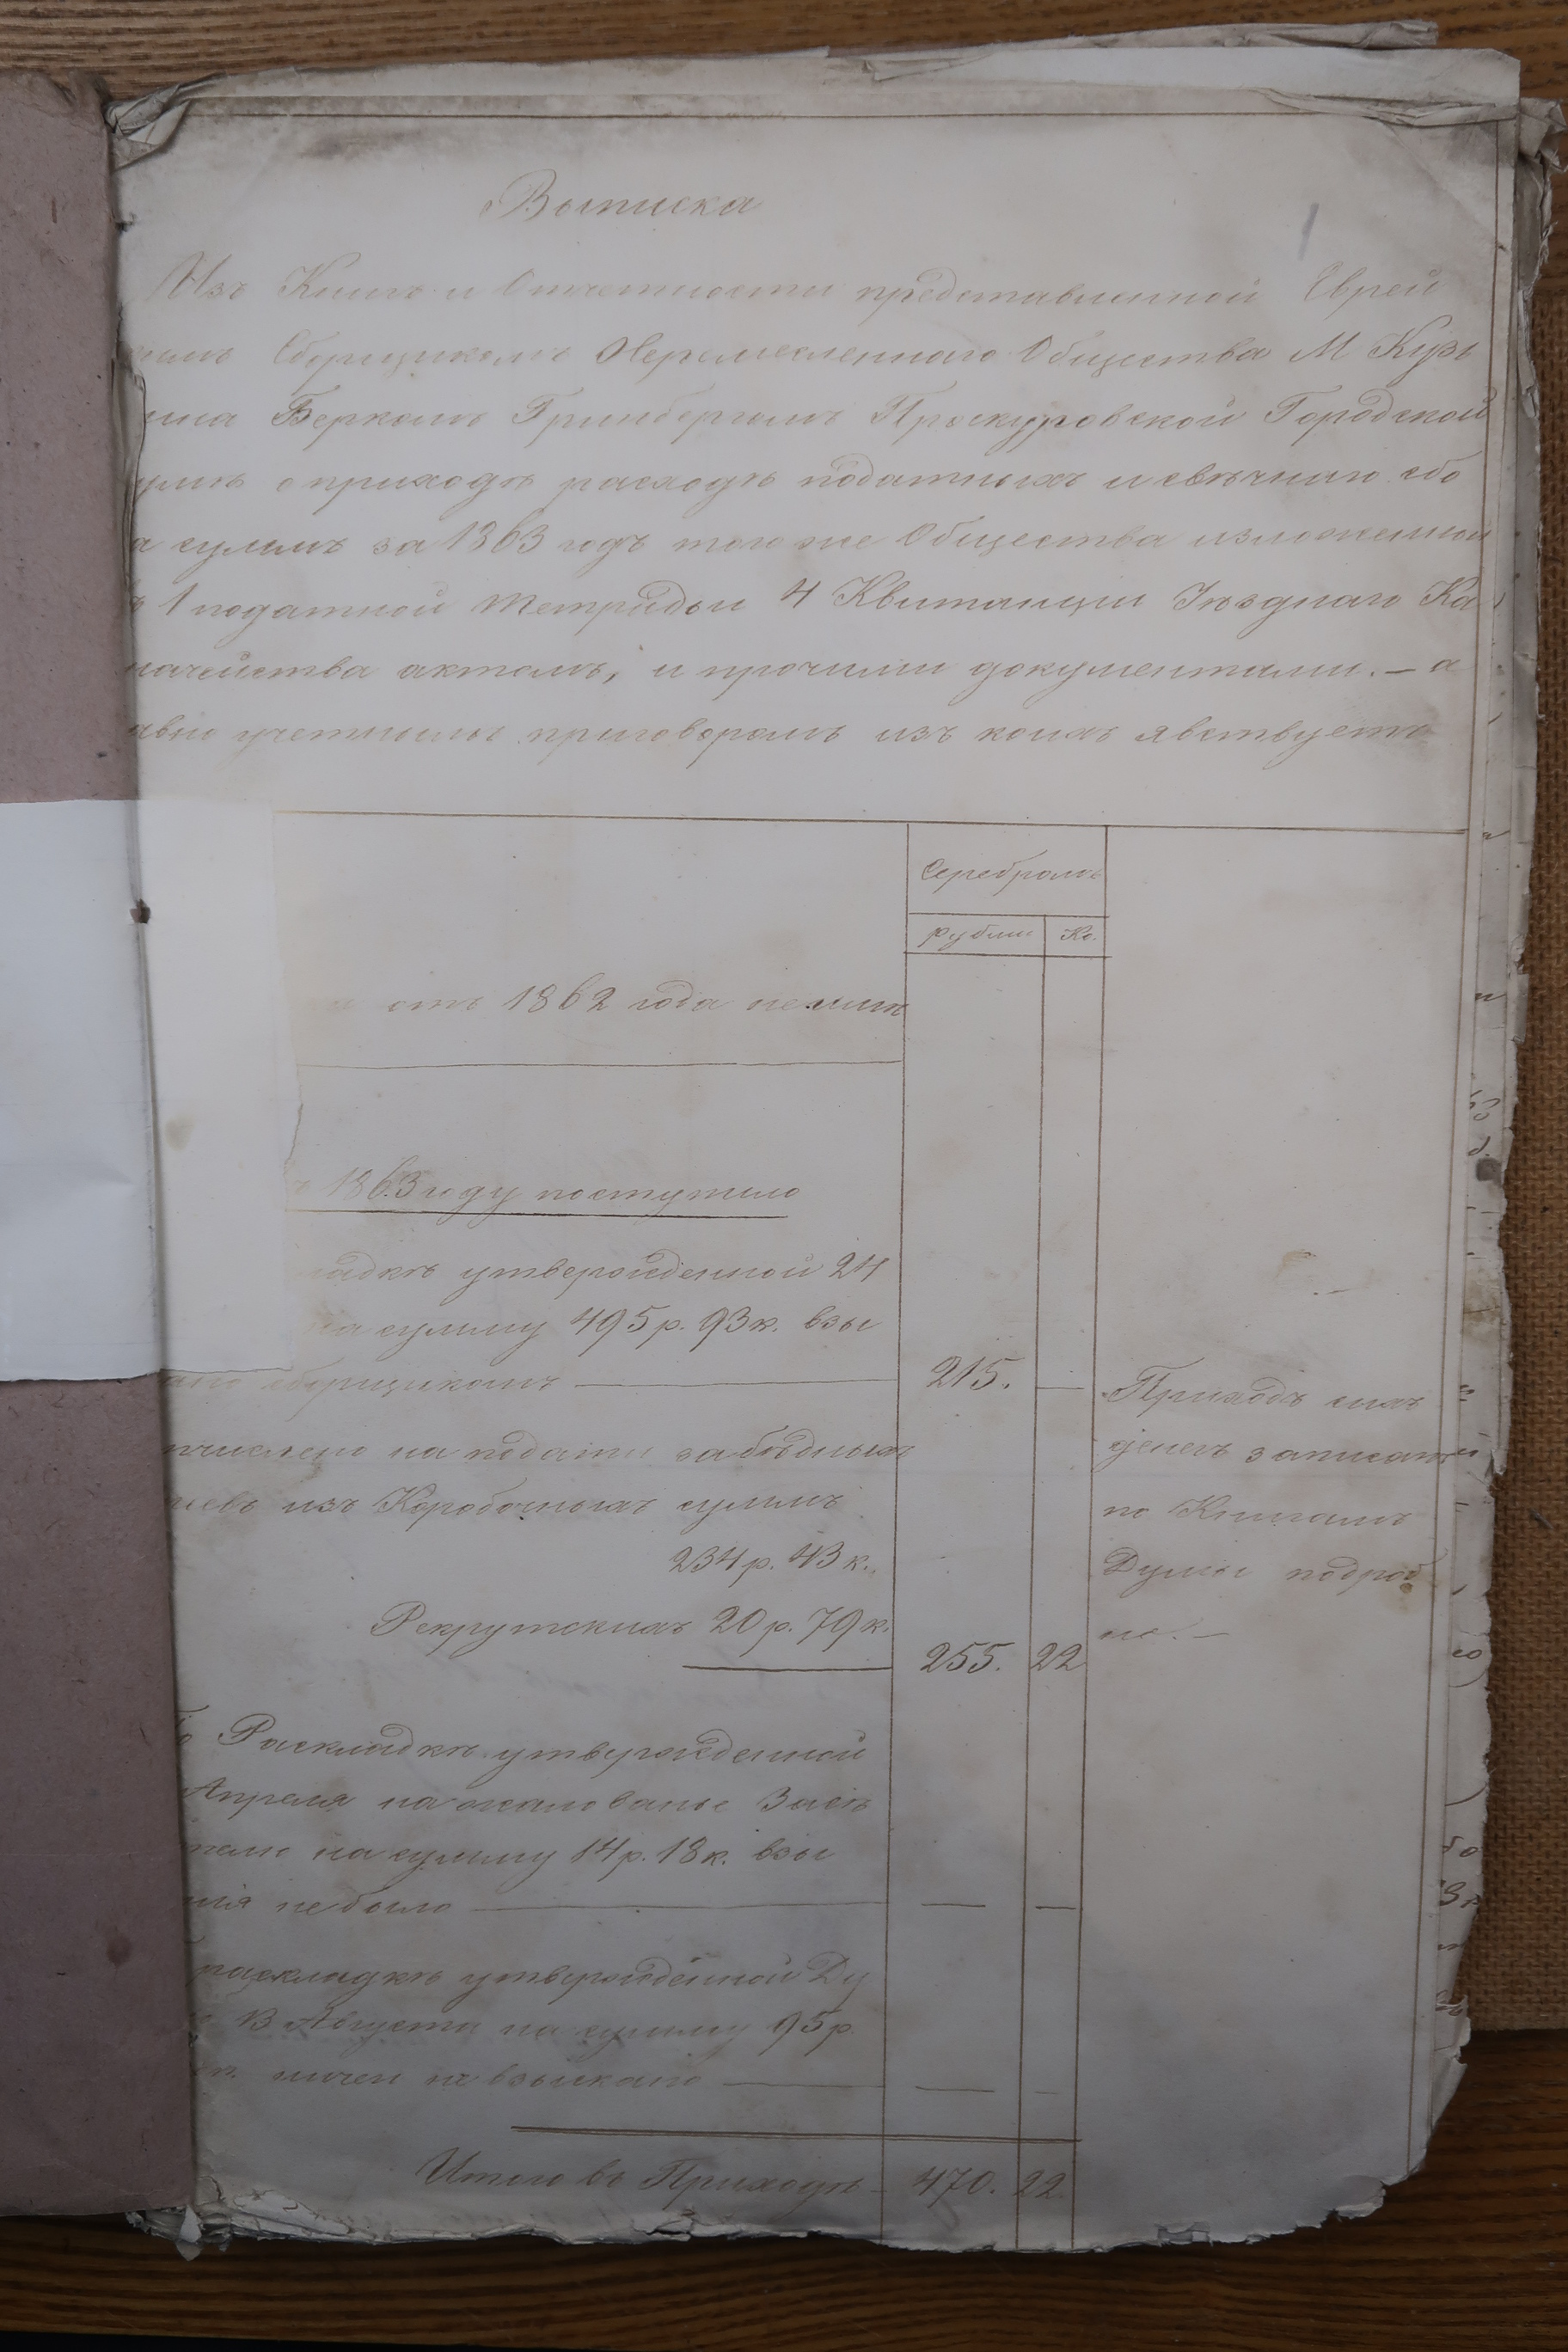 Выписка
1
Изъ Книги и Отчетности представленной Еврей
Сборщикомъ Общества М Кузь
мина Беркомъ Гринбергомъ Проскуровской Городской
о приходѣ расходѣ податныхъ и свѣчнаго сбо
а суммъ за 1863 годъ того же Общества изложенной
1 податной тетради 4 Квитанции Уѣзднаго Ка
начейства актомъ, и прочими документами. — а
авно учетнымъ приговоромъ изъ коихъ явствуетъ
Серебромъ
рубли Ко.
отъ 1862 года неимѣ
1863 году поступило
ладкѣ утвержденной 24
на сумму 495 р. 93 к. взы
ано сборщикомъ — 215. —
Приходъ сихъ
денегъ записанъ
по Книгамъ
Думы подроб
но. —
ичислено на подати за бѣдныхъ
евъ изъ Коробочныхъ суммъ
234 р. 43 к.
Рекрутскихъ 20 р. 79 к.
255. 22
Раскладкѣ утвержденной
Апреля на жалованье Засѣ
телю на сумму 14 р. 18 к. взы
ния небыло — — —
раскладкѣ утвержденной Ду
13 Августа на сумму 95 р
ничего не взыскано — — —
Итого въ Приходѣ 470. 22